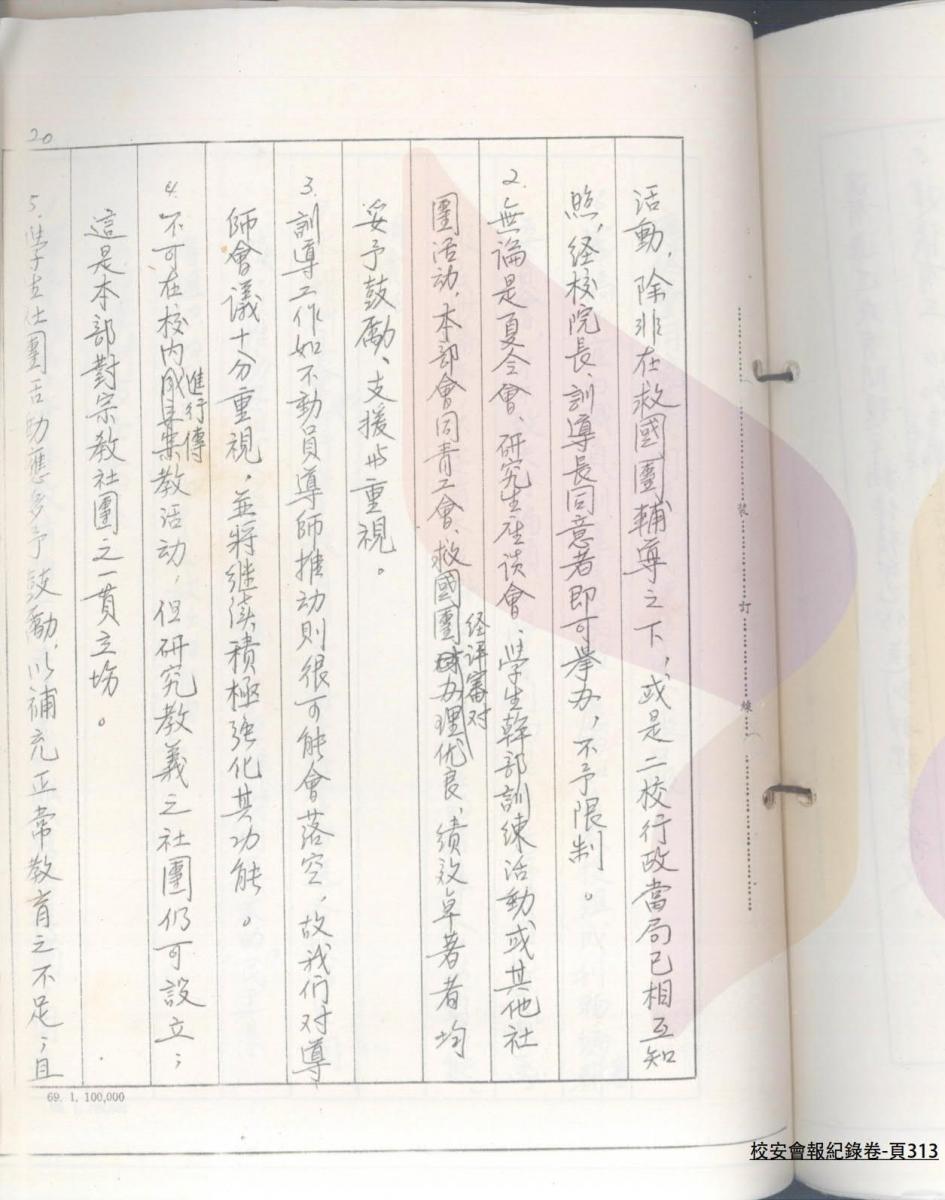 活動，除非在救國團輔導之下，或是二校行政當局已相互知
照，经校院長、訓導長同意者即可举办，不予限制。
2. 無論是夏令會、研究生座谈會、學生幹部訓練活動或其他社
團活动，本部會同青工會、救國團经评審对办理优良、績效卓著者均
妥予鼓励、支援与重視。
3. 訓導工作如不動員導師推动則很可能會落空，故我们对導
師會議十分重視，並將继续積極強化其功能。
4. 不可在校内進行傳教活动，但研究教義之社團仍可設立；
這是本部對宗教社團之一貫立場。
5. 學生社團活动應多予鼓勵，以補充正常教育之不足；且
20
69. 1. 100,000
裝
訂
線
校安會報紀錄卷-頁313